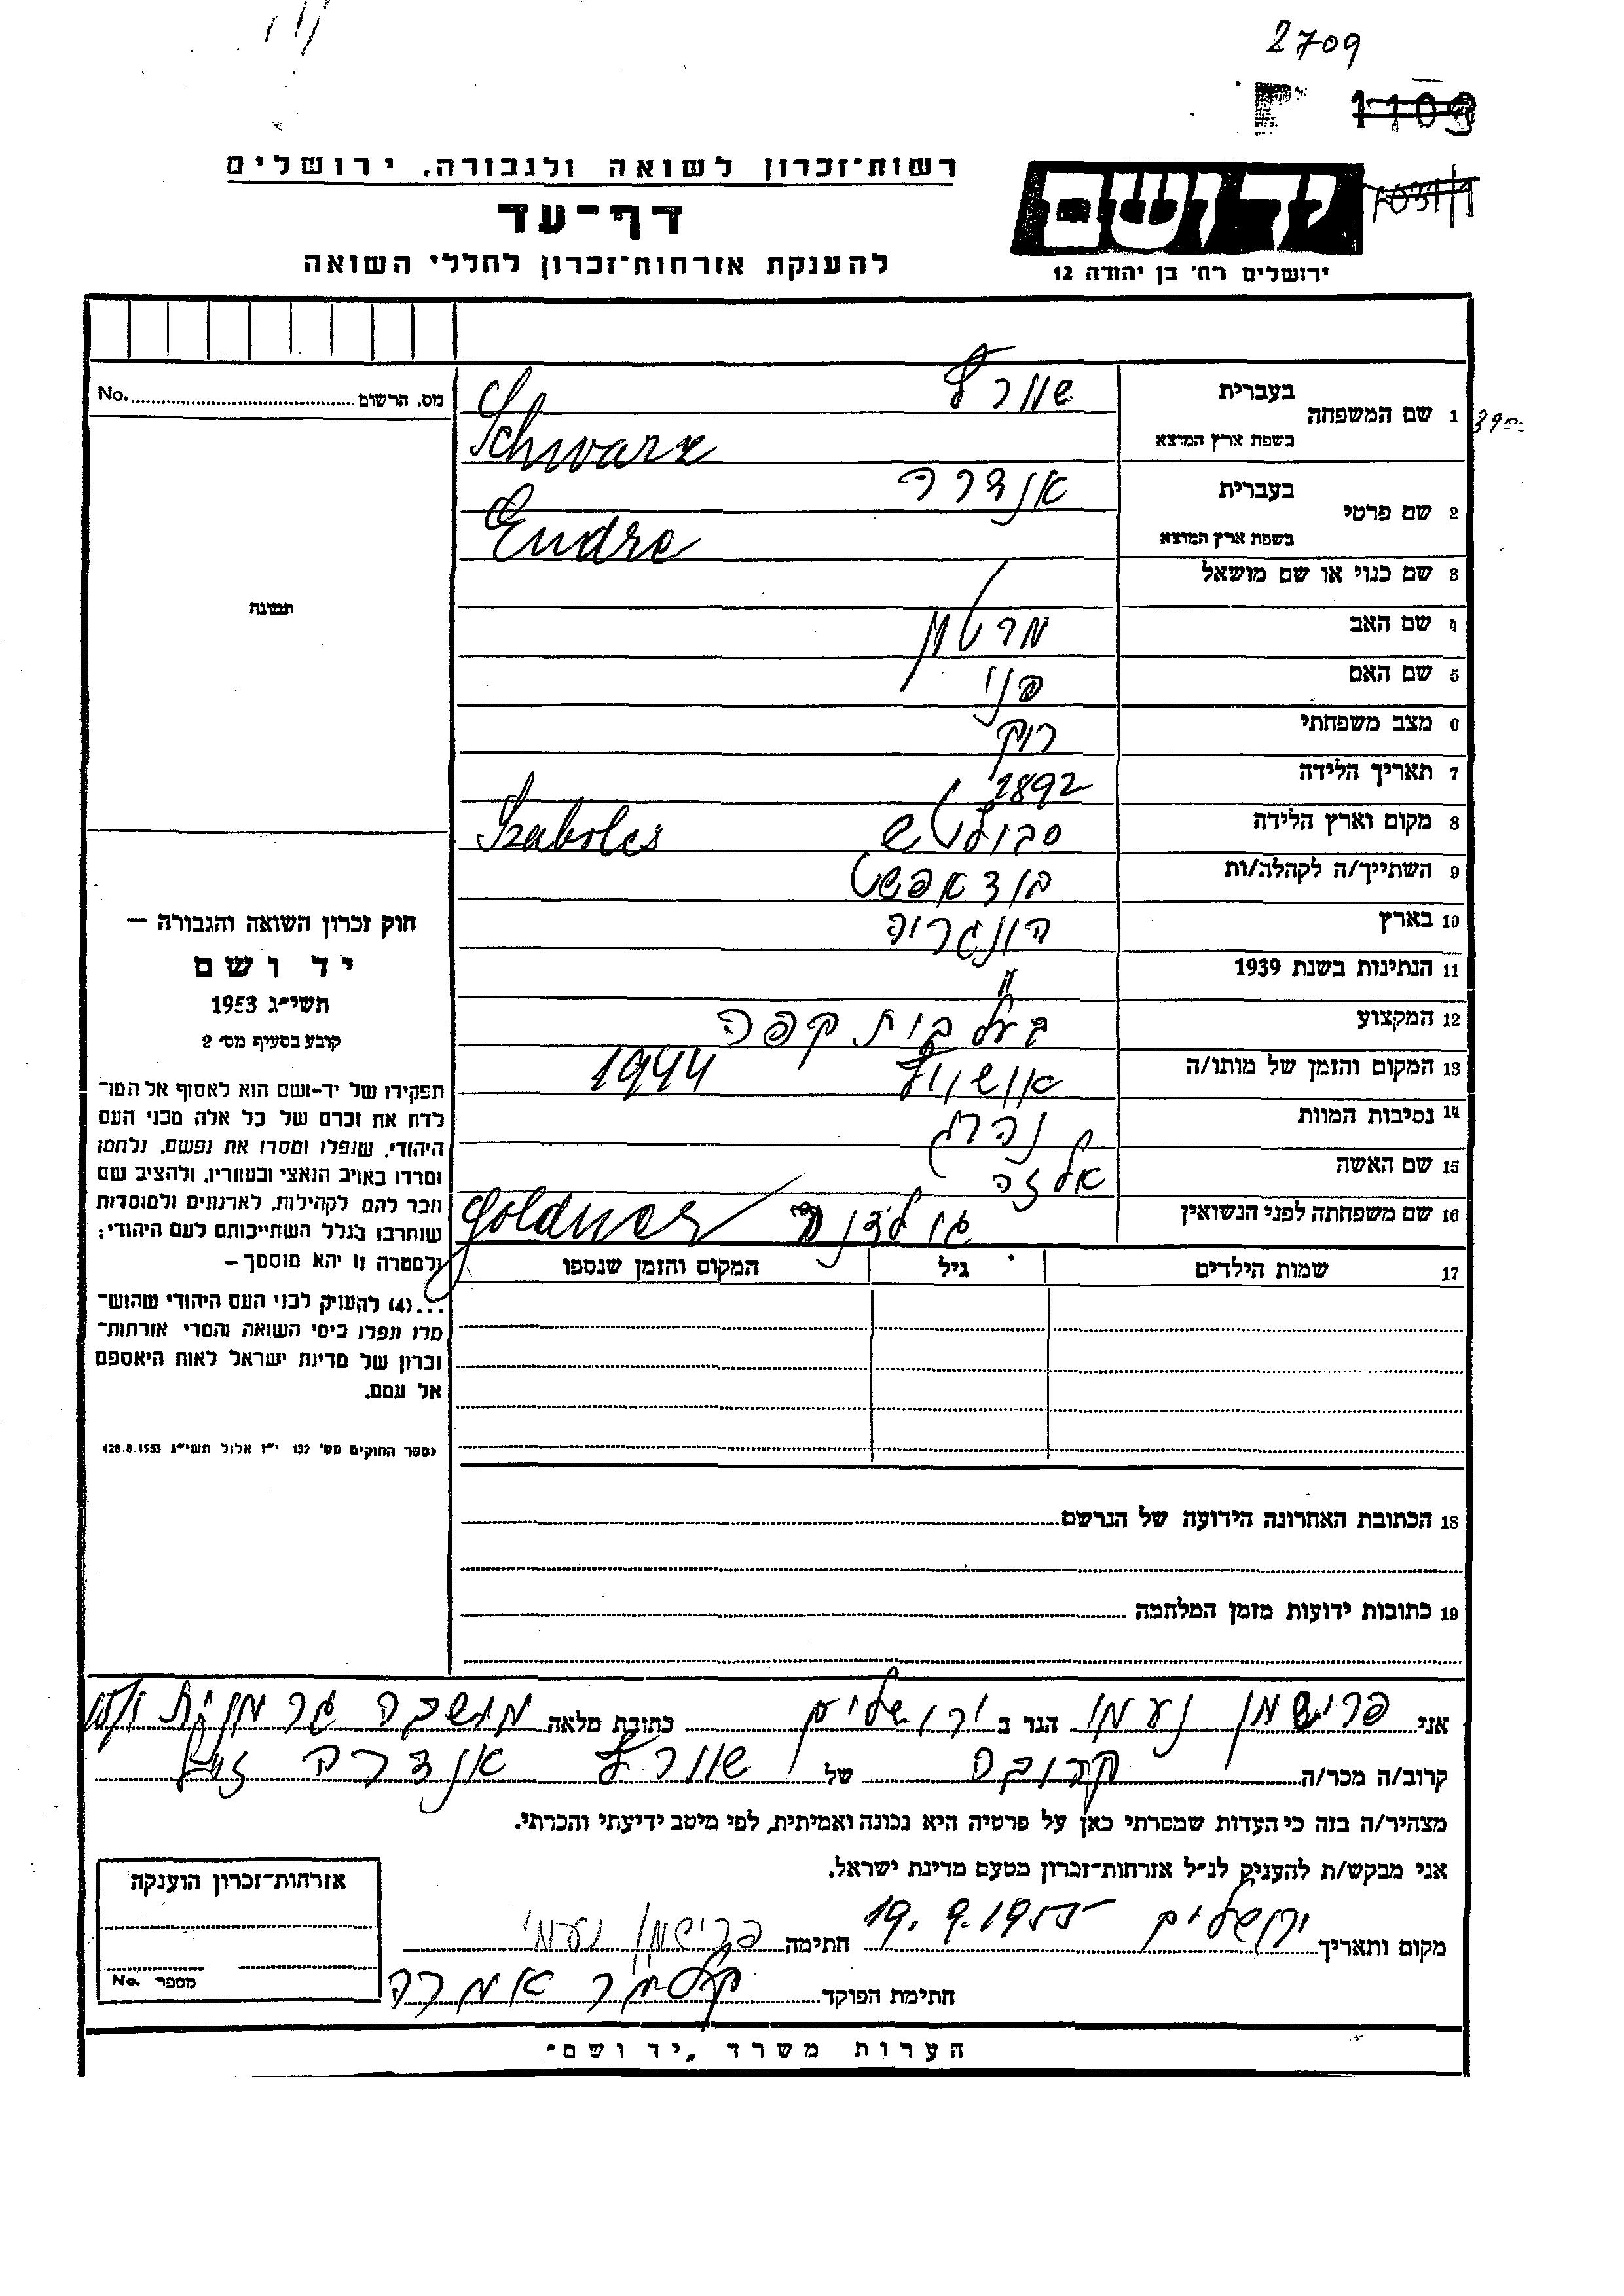 2709
1109
רשות־זכרון לשואה ולגבורה, ירושלים
דף־עד
להענקת אזרחות־זכרון לחללי השואה
יד ושם
ירושלים רח' בן יהודה 12
מס. הרשום No.
1 שם המשפחה
בעברית שוורץ
בשפת ארץ המוצא Schwarz
2 שם פרטי
בעברית אנדרה
בשפת ארץ המוצא Endre
3 שם כנוי או שם מושאל
4 שם האב מרטין
5 שם האם פני
6 מצב משפחתי
7 תאריך הלידה 1892
8 מקום וארץ הלידה סבולטש Szabolcs
9 השתייך/ה לקהלה/ות בודאפשט
10 בארץ הונגריה
11 הנתינות בשנת 1939 "
12 המקצוע בעל בית קפה
13 המקום והזמן של מותו/ה אושויץ 1944
14 נסיבות המוות נהרג
15 שם האשה אלזה
16 שם משפחתה לפני הנשואין גולדנר Goldner
17 שמות הילדים גיל המקום והזמן שנספו
18 הכתובת האחרונה הידועה של הנרשם
19 כתובות ידועות מזמן המלחמה
תמונה
חוק זכרון השואה והגבורה —
יד ושם
תשי״ג 1953
קובע בסעיף מס׳ 2
תפקידו של יד-ושם הוא לאסוף אל המו־
לדת את זכרם של כל אלה מבני העם
היהודי, שנפלו ומסרו את נפשם, נלחמו
ומרדו באויב הנאצי ובעוזריו, ולהציב שם
וזכר להם לקהילות, לארגונים ולמוסדות
שנחרבו בגלל השתייכותם לעם היהודי;
ולמטרה זו יהא מוסמך —
...(4) להעניק לבני העם היהודי שהוש־
מדו ונפלו בימי השואה והמרי אזרחות־
זכרון של מדינת ישראל לאות היאספם
אל עמם.
(ספר החוקים מס׳ 132 י״ז אלול תשי״ג 28.8.1953)
אני פרישמן נעמי הגר ב ירושלים כתובת מלאה מושבה גרמנית
קרוב/ה מכר/ה קרובה של שוורץ אנדרה ז"ל
מצהיר/ה בזה כי העדות שמסרתי כאן על פרטיה היא נכונה ואמיתית, לפי מיטב ידיעתי והכרתי.
אני מבקש/ת להעניק לנ״ל אזרחות־זכרון מטעם מדינת ישראל.
מקום ותאריך ירושלים 19.9.1955 חתימה פרישמן נעמי
חתימת הפוקד
אזרחות־זכרון הוענקה
מספר No.
הערות משרד „יד ושם"